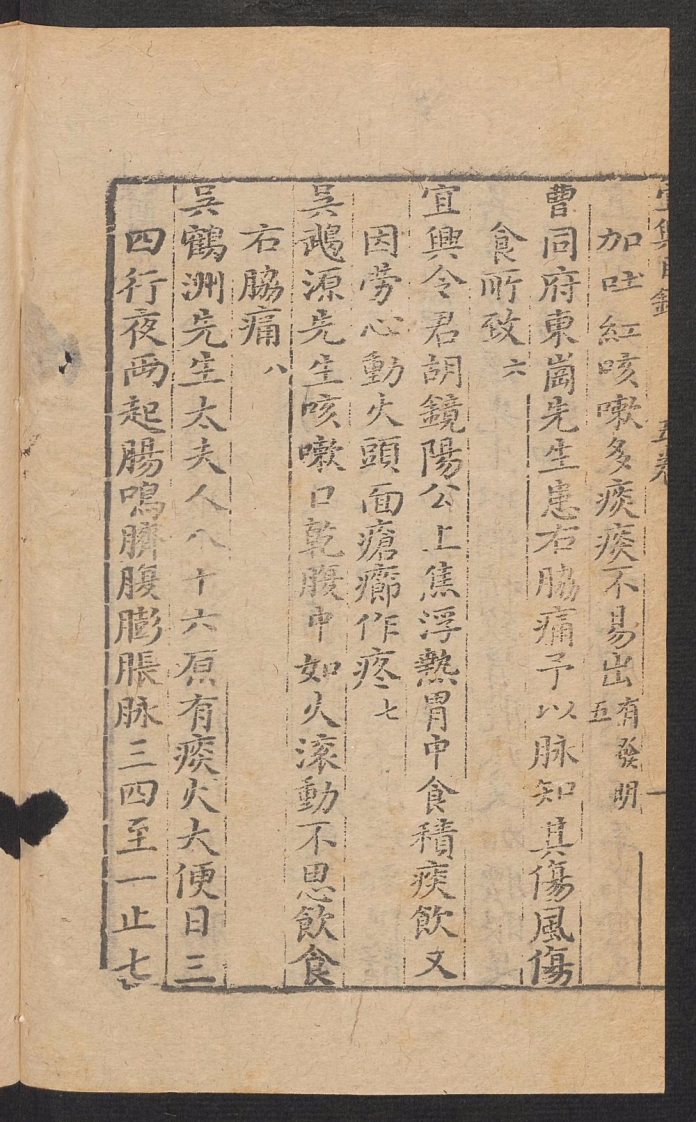 加吐紅咳嗽多痰痰不易出有發明五
曹同府東崗先生患右脇痛予以脉知其傷風傷
食所致六
宜興令君胡鏡陽公上焦浮熱胃中食積痰飲又
因勞心動火頭面瘡癤作疼七
吳鵡源先生咳嗽口乾腹中如火滚動不思飲食
右脇痛八
吳鶴洲先生太夫人八十六原有痰火大便日三
四行夜兩起腸鳴臍腹膨脹脉三四至一止七